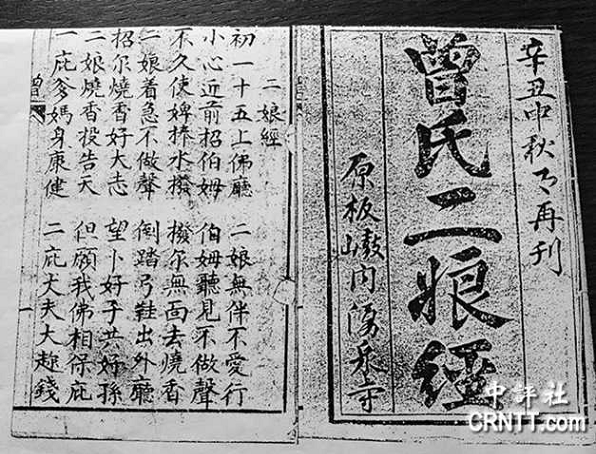 辛丑中秋月再刊
曾氏二娘經
原板 内湧泉寺
二娘經
初一十五上佛廳　二娘無伴不愛行
小心近前招伯姆　伯姆聽見不做聲
不久使婢捧水撥　撥尔無面去燒香
二娘着急不做聲　倒踏弓鞋出外廳
招尔燒香好大志　望卜好子共好孫
二娘燒香投告天　但願我佛相保庇
一庇爹媽身康健　二庇丈夫大趂錢
曾
一
中評社
CRNTT.com